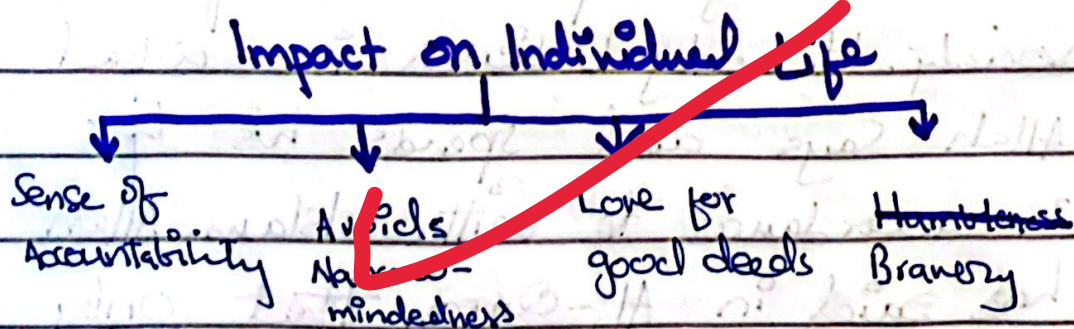 Impact on Individual Life
Sense of
Accountability
Avoids
Narrow-
mindedness
Love for
good deeds
Humbleness
Bravery